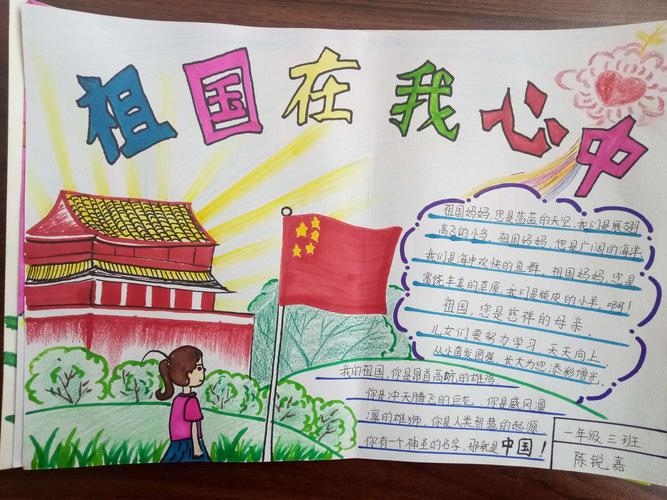 祖国在我心中
祖国妈妈,您是蓝蓝的天空,我们是展翅
高飞的小鸟。祖国妈妈,您是广阔的海洋
我们是海中欢快的鱼群。祖国妈妈,您是
富饶丰美的草原,我们是顽皮的小羊。啊!
祖国,您是慈祥的母亲
儿女们要努力学习 天天向上
从小奋发图强 长大为您添彩增光。
我的祖国,你是昂首高吭的雄鸡
你是冲天腾飞的巨龙,你是威风凛
凛的雄狮,你是人类智慧的起源
你有一个神圣的名字,那就是中国!
一年级三班
陈锐嘉